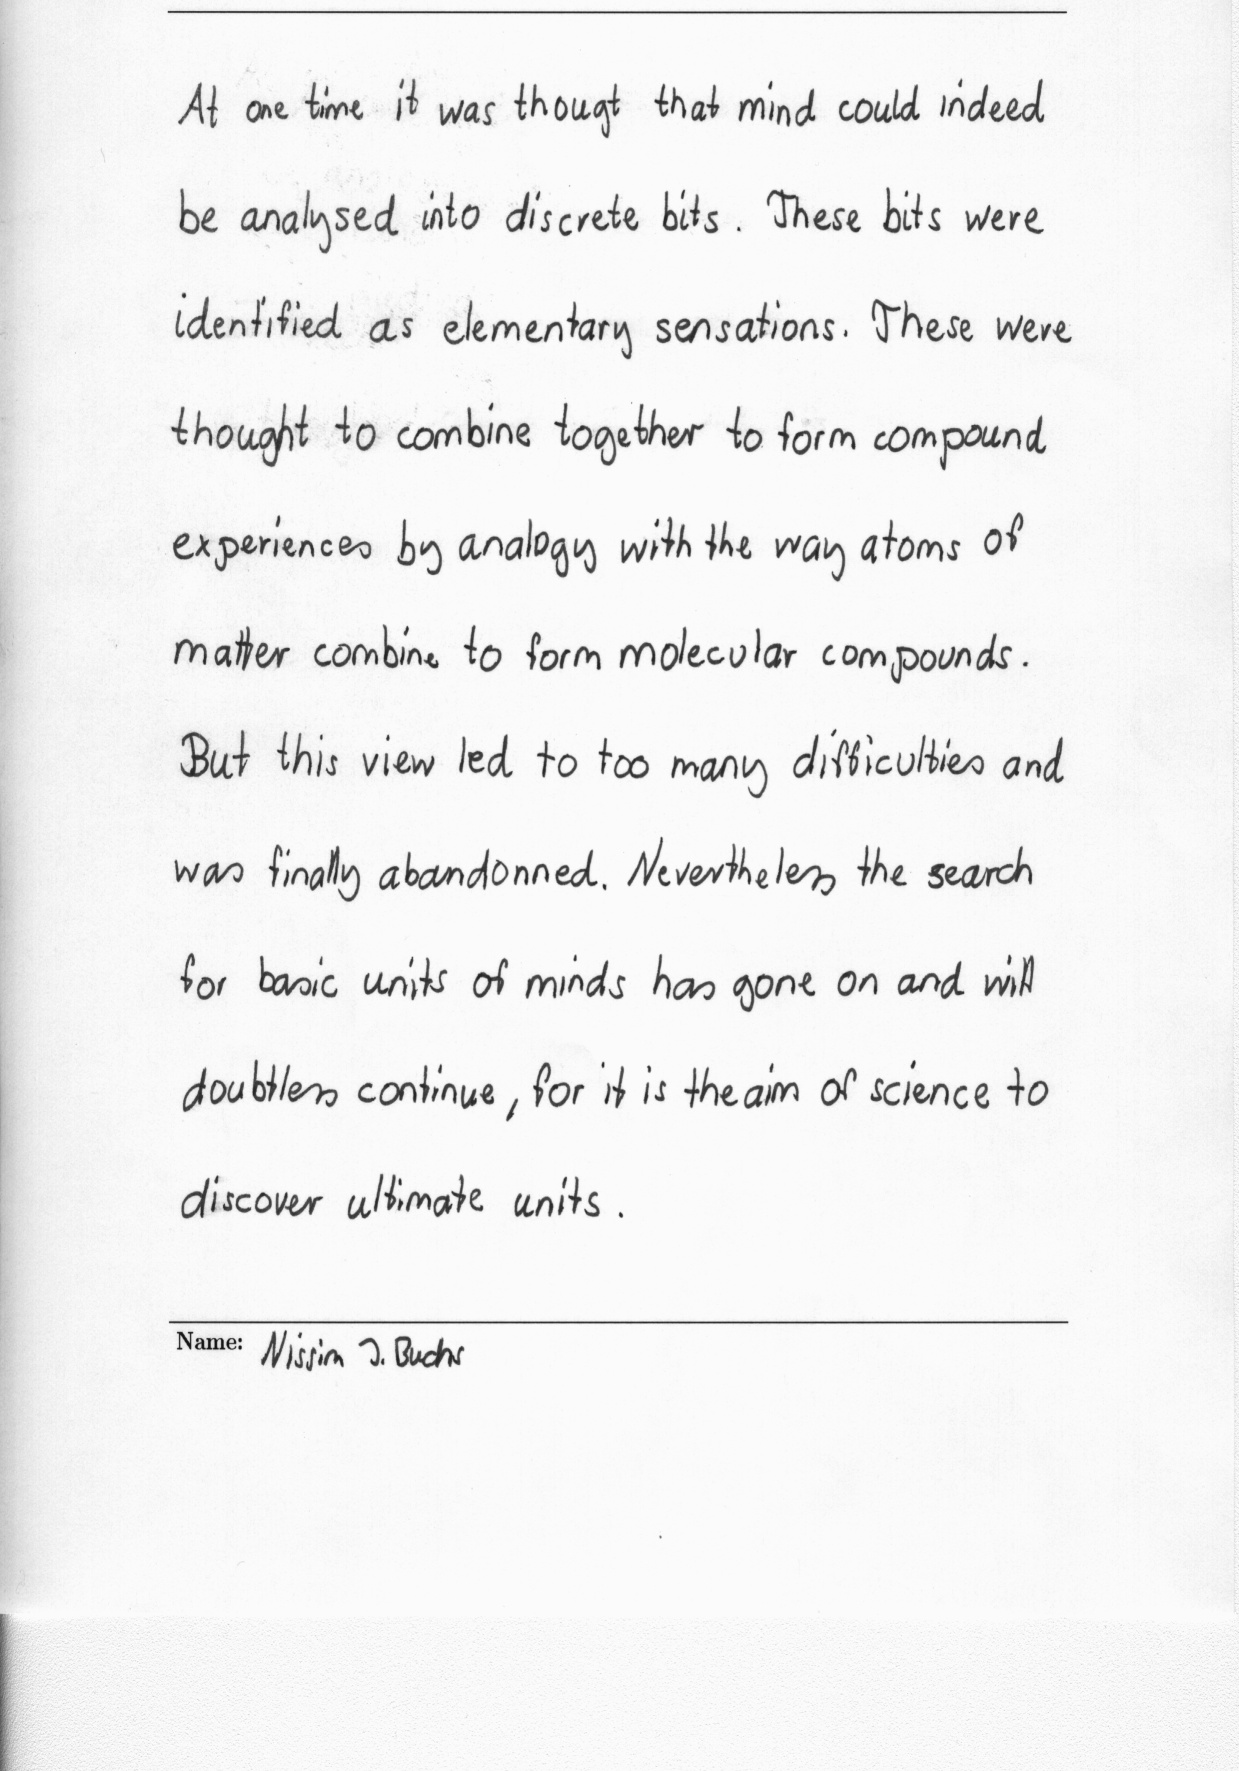 At one time it was thougt that mind could indeed
be analysed into discrete bits. These bits were
identified as elementary sensations. These were
thought to combine together to form compound
experiences by analogy with the way atoms of
matter combine to form molecular compounds.
But this view led to too many difficulties and
was finally abandonned. Nevertheless the search
for basic units of minds has gone on and will
doubtless continue, for it is the aim of science to
discover ultimate units.
Name: Nissim J. Buchs